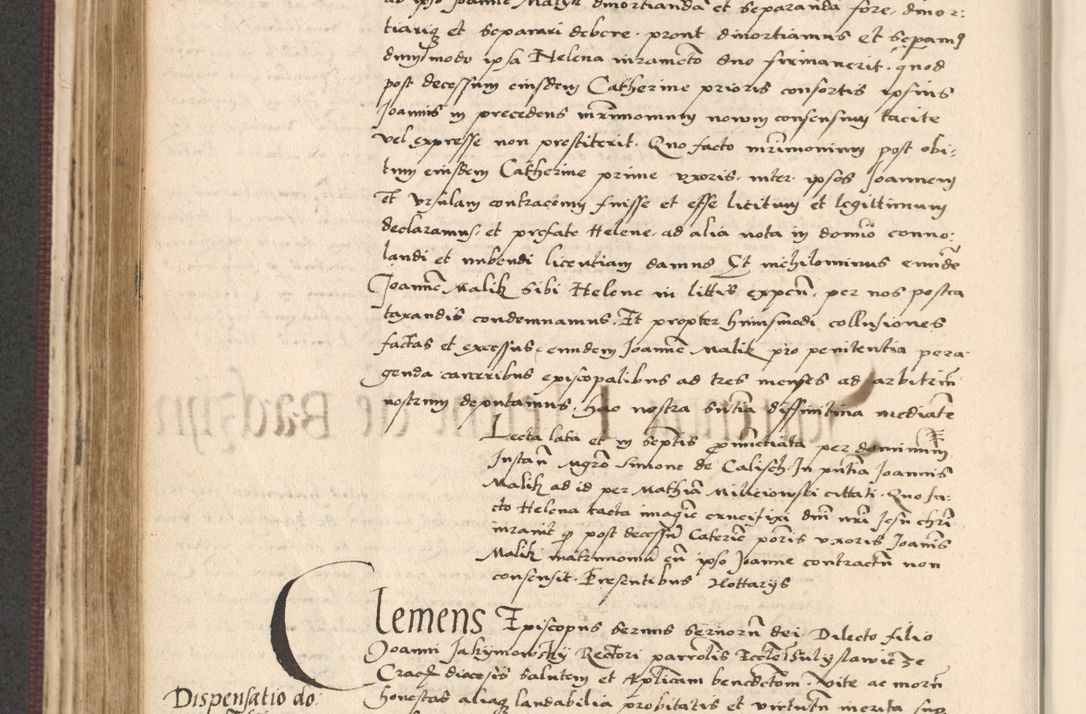 ab ipso Joanne Malyk divortianda et separanda fore, divor:
tiariq et separari debere. pront divortiamus et separamꝰ
dummodo ipsa Helena iuramento suo firmaverit. quod
post decessum eiusdem Catherine prioris consortis ipsius
Joannis in precedens mrimonium novum consensum tacite
vel expresse non prestiterit. Quo facto mrimonium post obi:
tum eiusdem Catherine prime uxoris inter ipsos Joannem
Et Ursulam contractum fuisse et esse licitum et legittimum
declaramus, et prefate Helene ad alia vota in domino convo:
landi et nubendi licentiam damus Et nichilominus eundem
Joannem Malik sibi Helene in littis expen. per nos postea
taxandis condemnamus. Et propter huiusmodi collusiones
factas et excessus eundem Joannem Malik pro penitentia pera
genda carceribus episcopalibus ad tres menses ad arbitrium
nostrum deputamus. hac nostra sentia diffinitiva mediante
Lecta lata et in scriptis pronunctiata per dominum
Instan Magro Simone de Calisch In pntia Joannis
Malik ad id per Mathiam citati. Quo fa:
cto Helena tacta imagine crucifixi dni nri Jesu chri
iuravit q post decessum Caterine prioris uxoris Joanis
Malik matrimonia cum ipso Joanne contractum non
consensit. Presentibus Nottarys
Clemens Episcopus servus servorum dei Dilecto filio
Joanni Jakymowsky Rectori parrolis Ecclesie
Cracoy diocesis salutem et Aplicam benedictom. vite ac morum
Dispensatio do:
honestas aliaq laudabilia probitatis et virtutum merita sup